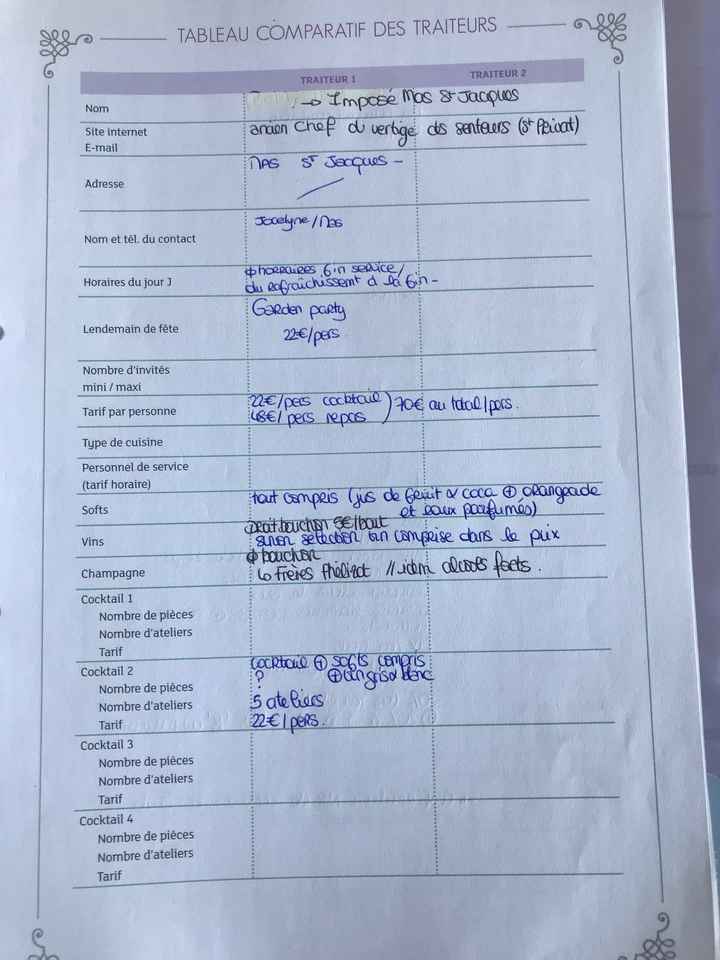 TABLEAU COMPARATIF DES TRAITEURS
TRAITEUR 1 TRAITEUR 2
Nom → Imposé Mas St Jacques
Site internet ancien chef du vertige des senteurs (St Privat)
E-mail
Adresse MAS St Jacques -
Nom et tél. du contact Jocelyne / Mas
Horaires du jour J ϕ horraires fin service /
du rafraîchissement à la fin -
Lendemain de fête Garden party
22€/pers
Nombre d'invités
mini / maxi
Tarif par personne 22€/pers cocktail ) 70€ au total/pers.
48€/pers repas
Type de cuisine
Personnel de service
(tarif horaire)
Softs tout compris (jus de fruit & coca ⊕ orangeade
et eaux parfumés)
Vins droit bouchon 5€/bout
sinon sélection vin comprise dans le prix
Champagne ϕ bouchon
↳ Frères // idem alcools forts.
Cocktail 1
Nombre de pièces
Nombre d'ateliers
Tarif
Cocktail 2 cocktail ⊕ softs compris
Nombre de pièces ? ⊕ vin gris & blanc
Nombre d'ateliers 5 ateliers
Tarif 22€/pers.
Cocktail 3
Nombre de pièces
Nombre d'ateliers
Tarif
Cocktail 4
Nombre de pièces
Nombre d'ateliers
Tarif